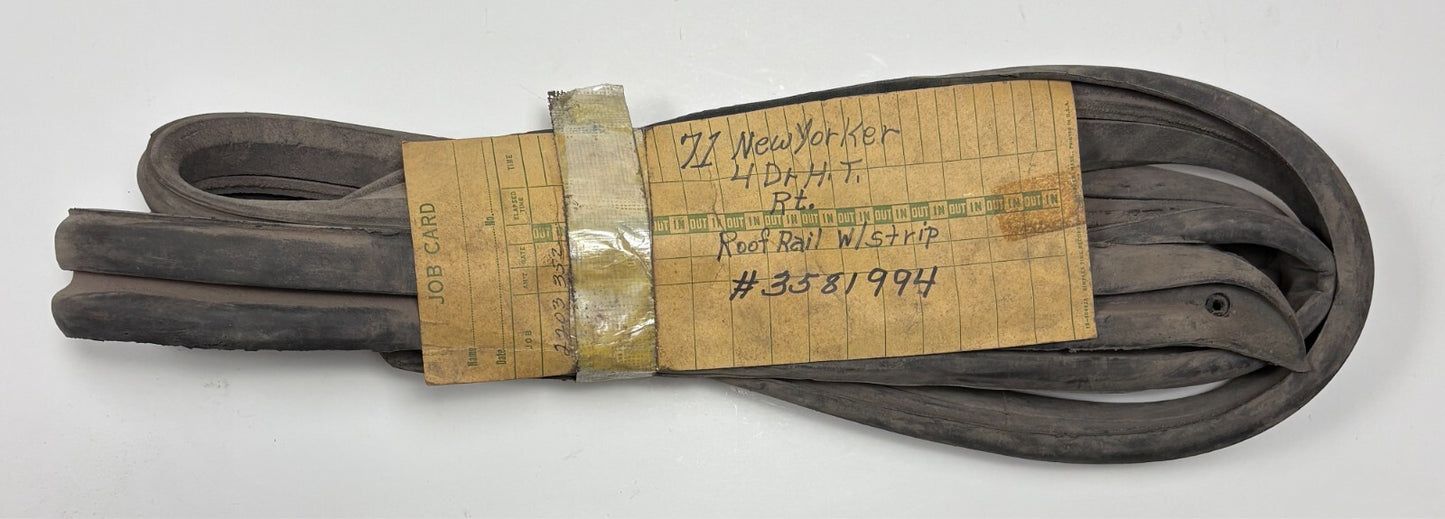 71 New Yorker
4 Dr. H.T.
Rt.
OUT IN OUT IN OUT IN OUT IN OUT IN OUT IN OUT IN OUT IN OUT IN OUT IN OUT IN
Roof Rail W/strip
#3581994
JOB CARD
Name
No.
Date
JOB
AMT
DATE
ELAPSED TIME
TIME
OUT
PRINTED IN U.S.A.